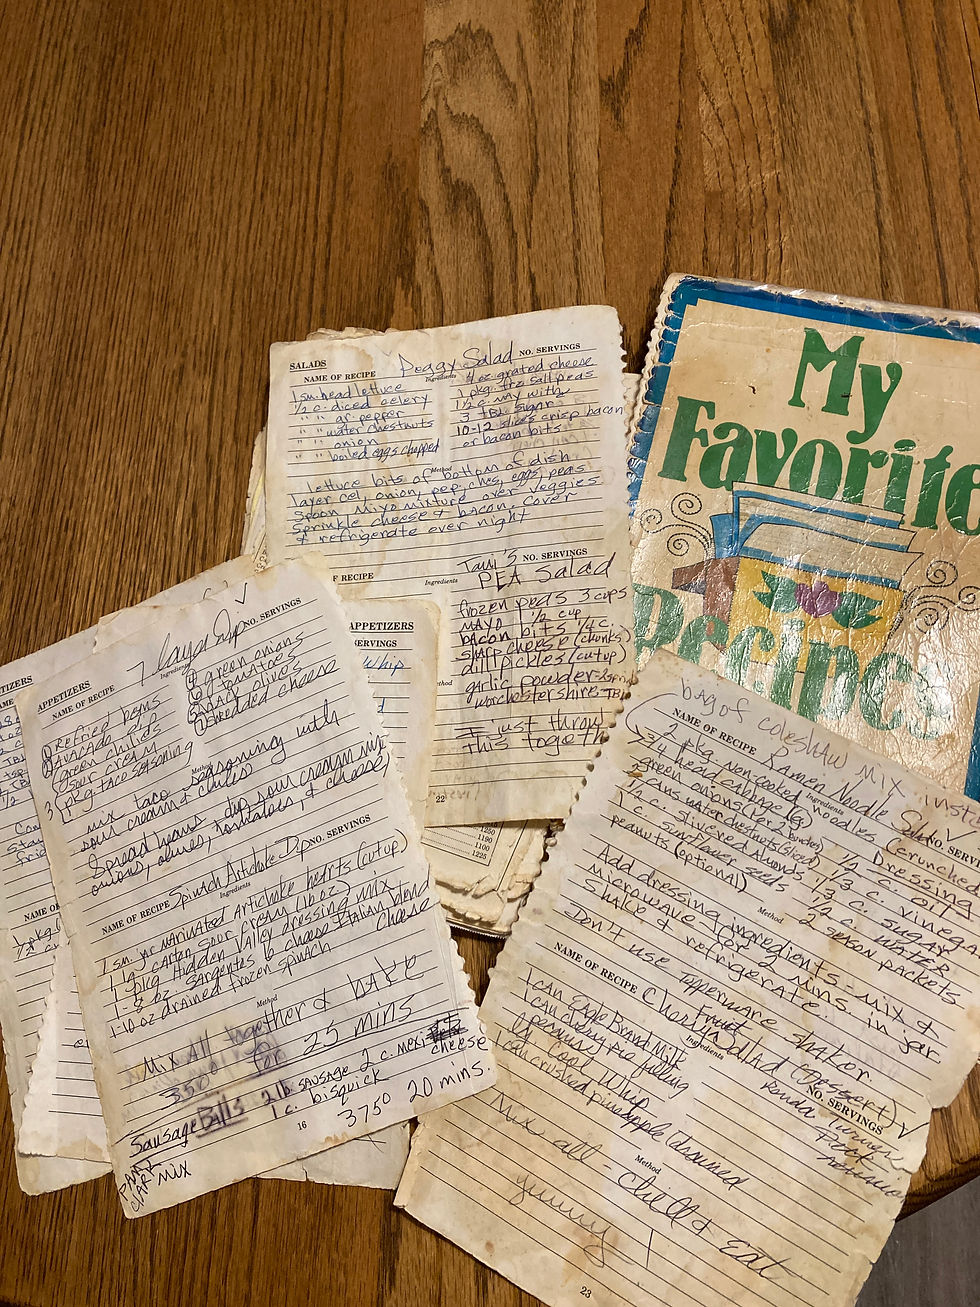 My
Favorite
Recipes
SALADS
Peggy Salad
NO. SERVINGS
NAME OF RECIPE
Ingredients
1 sm. head lettuce
1/2 c. diced celery
" " gr. pepper
" " water chestnuts
" " onion
" " boiled eggs chopped
4 oz. grated cheese
1 pkg. fro sall peas
1 1/2 c. may with
3 TBL sugar
10-12 slices crisp bacon
or bacon bits
Method
lettuce bits of bottom of dish
layer cel, onion, pep, ches, eggs, peas
Spoon Miyo mixture over veggies
Sprinkle cheese & bacon. cover
& refrigerate over night
OF RECIPE
Ingredients
NO. SERVINGS
PEA Salad
frozen peas 3 cups
mayo 1/2 cup
bacon bits 1/4 c.
sharp cheese (chunks)
dill pickles (cut up)
garlic powder
worchestershire
I just throw
this togoth
22
1250
1190
1100
1225
APPETIZERS
SERVINGS
APPETIZERS
NAME OF RECIPE
7 layer Dip
NO. SERVINGS
Ingredients
refried beans
avacado dip
green chilids
sour cream
1 pkg taco seasoning
green onions
tomatoes
olives
shredded cheese
Method
mix taco seasoning with
sour cream & chiles
Spread beans, dip, sour cream mix
onions, olives, tomatoes, & cheese
NAME OF RECIPE
Spinach Artichoke Dip
NO. SERVINGS
Ingredients
1 sm. jar marinated artichoke hearts (cut up)
carton sour cream (16 oz)
1 pkg Hidden Valley dressing mix
1-8 oz. Sargentes 6 cheese Italian blend
cheese
1-10 oz drained frozen spinach
Method
Mix all together & bake
350° for 25 mins
Sausage Balls 2 lb. sausage 2 c. mexi
cheese
1 c. bisquick
16
375° 20 mins.
mix
bag of coleslaw mix inst
NAME OF RECIPE
Ramen Noodle Salad
NO. SERVINGS
Ingredients
2 pkg. non-cooked noodles (crunched
3/4 head cabbage
green onions
cans water chestnuts (sliced)
1/2 c. slivered almonds
1 c. sunflower seeds
peanuts (optional)
Dressing
1/2 c. oil
1/3 c. vinegar
1/3 c. sugar
1/2 c. water
2 season packets
Method
Add dressing ingredients - mix &
microwave for 2 mins in jar
Shake & refrigerate
Don't use tupperware shakor.
NAME OF RECIPE
Cherry Fruit Salad (Dessert)
NO. SERVINGS
Ingredients
1 can Eagle Brand Milk
1 can cherry pie filling
peanuts
Cool Whip
1 can crushed pineapple (drained
Method
Mix all - chill & Eat
yummy!
23